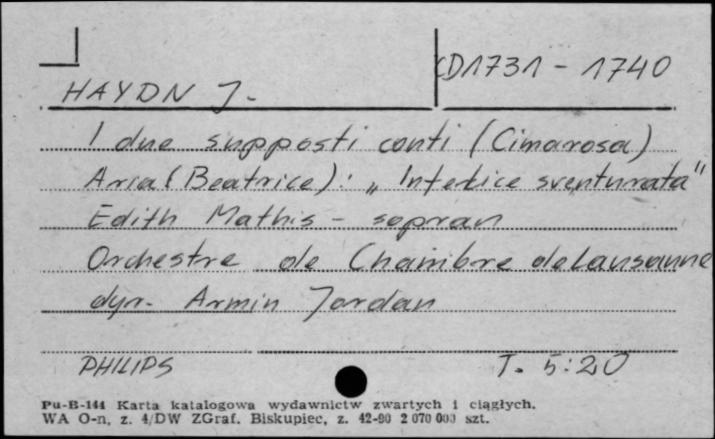 CD1731 - 1740
HAYDN J.
I due supposti conti (Cimarosa)
Aria (Beatrice): „Infelice sventurata"
Edith Mathis - sopran
Orchestre de Chambre de Lausanne
dyr. Armin Jordan
PHILIPS T. 5:20
Pu-B-144 Karta katalogowa wydawnictw zwartych i ciągłych.
WA O-n, z. 4/DW ZGraf. Biskupiec, z. 42-90 2 070 000 szt.